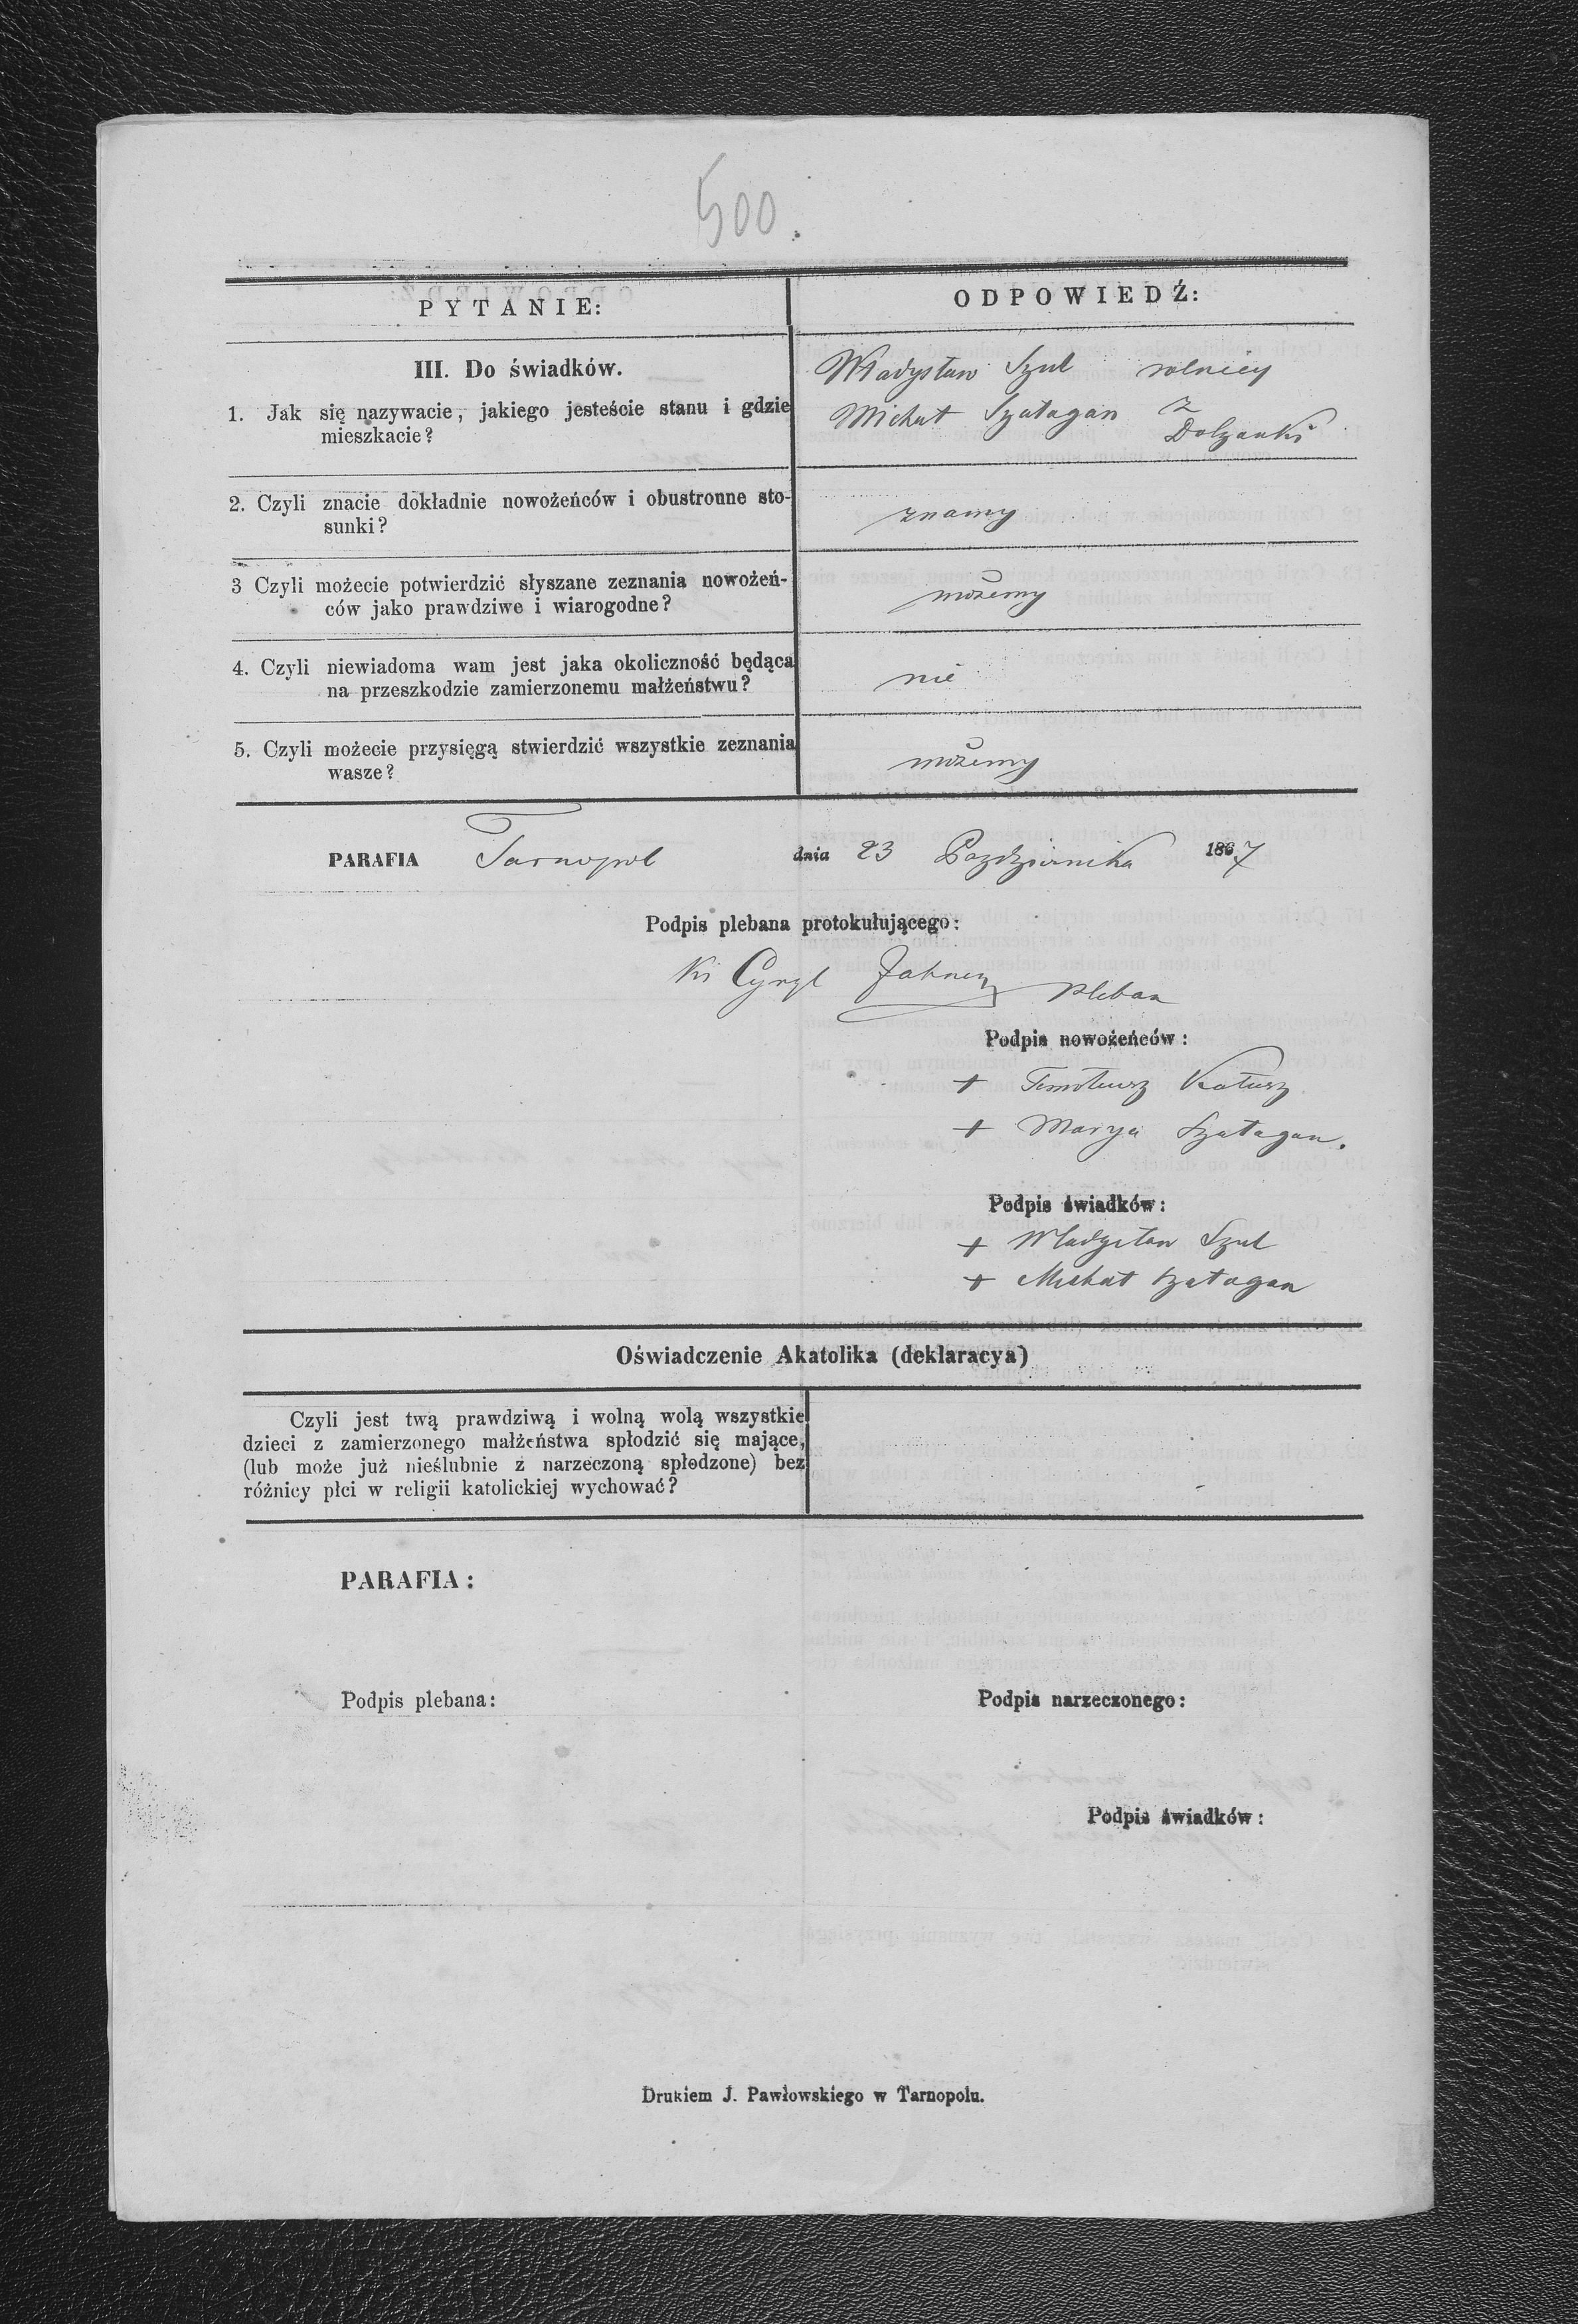 500.
PYTANIE:
ODPOWIEDŹ:
III. Do świadków.
1. Jak się nazywacie, jakiego jesteście stanu i gdzie
mieszkacie?
Władysław Szul rolnicy
Michał Szałagan z
Dolzanki
2. Czyli znacie dokładnie nowożeńców i obustronne sto-
sunki?
znamy
3 Czyli możecie potwierdzić słyszane zeznania nowożeń-
ców jako prawdziwe i wiarogodne?
możemy
4. Czyli niewiadoma wam jest jaka okoliczność będąca
na przeszkodzie zamierzonemu małżeństwu?
nie
5. Czyli możecie przysięgą stwierdzić wszystkie zeznania
wasze?
możemy
PARAFIA Tarnopol dnia 23 Pazdziernika 1867
Podpis plebana protokułującego:
Cyryl pleban
Podpis nowożeńców:
+ Timoteusz Kałusz
+ Marya Szałagan.
Podpis świadków:
+ Władysław Szul
+ Michał Szałagan
Oświadczenie Akatolika (deklaracya)
Czyli jest twą prawdziwą i wolną wolą wszystkie
dzieci z zamierzonego małżeństwa spłodzić się mające,
(lub może już nieślubnie z narzeczoną spłodzone) bez
różnicy płci w religii katolickiej wychować?
PARAFIA:
Podpis plebana:
Podpis narzeczonego:
Podpis świadków:
Drukiem J. Pawłowskiego w Tarnopolu.